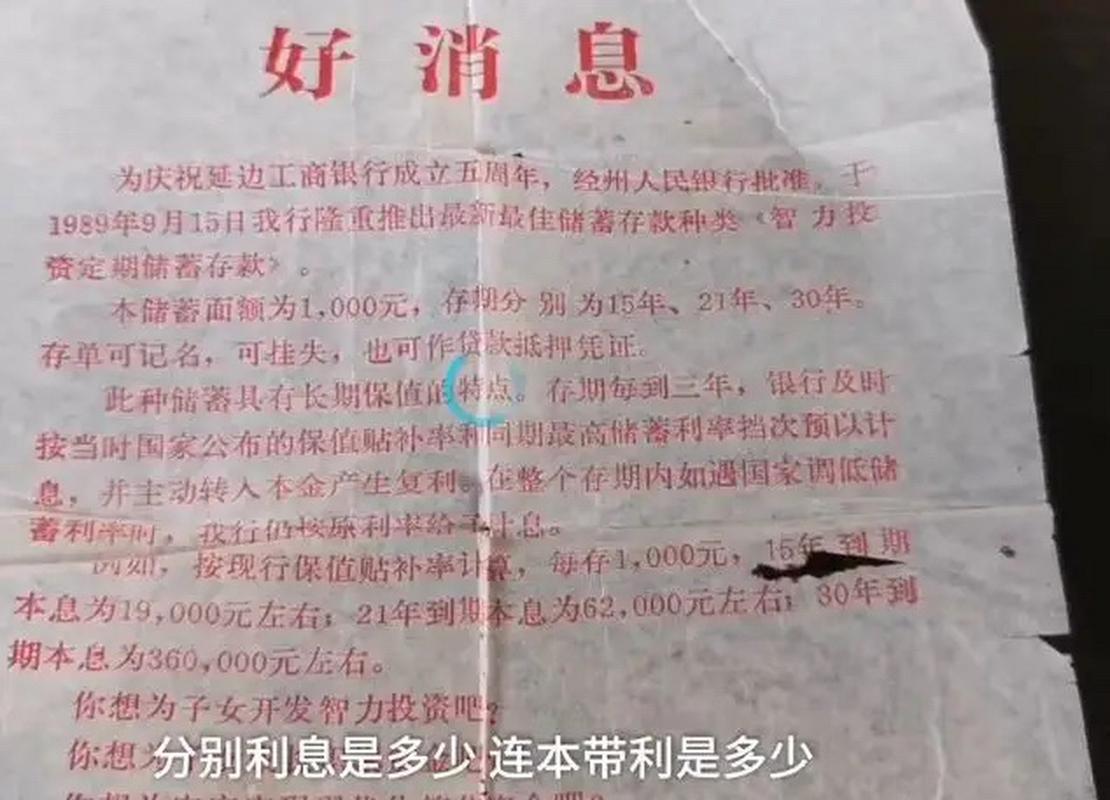 好消息
为庆祝延边工商银行成立五周年，经州人民银行批准，于
1989年9月15日我行隆重推出最新最佳储蓄存款种类《智力投
资定期储蓄存款》。
本储蓄面额为1,000元，存期分别为15年、21年、30年。
存单可记名，可挂失，也可作贷款抵押凭证。
此种储蓄具有长期保值的特点。存期每到三年，银行及时
按当时国家公布的保值贴补率和同期最高储蓄利率挡次预以计
息，并主动转入本金产生复利。在整个存期内如遇国家调低储
蓄利率时，我行仍按原利率给予计息。
例如，按现行保值贴补率计算，每存1,000元，15年到期
本息为19,000元左右；21年到期本息为62,000元左右；30年到
期本息为360,000元左右。
你想为子女开发智力投资吧？
你想为
分别利息是多少 连本带利是多少